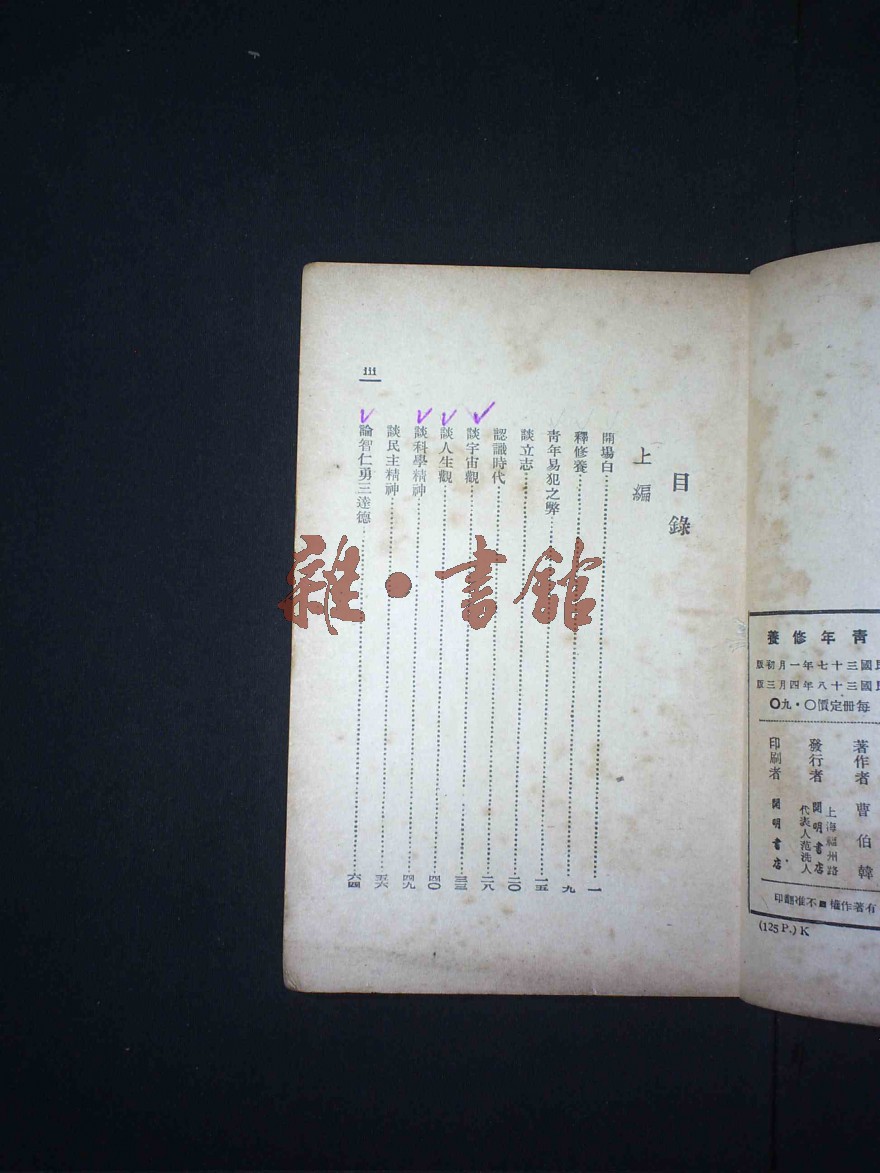 目錄
上編
開場白……一
釋修養……九
青年易犯之弊……一五
談立志……二〇
認識時代……二八
談宇宙觀……三三
談人生觀……四〇
談科學精神……四九
談民主精神……五六
論智仁勇三達德……六四
iii
雜·書館
養修年青
版初月一年七十三國民
版三月四年八十三國民
〇九·〇價定冊每
著作者 曹伯韓
發行者 開明書店
上海福州路
代表人范洗人
印刷者 開明書店
印翻准不■權作著有
(125 P.) K